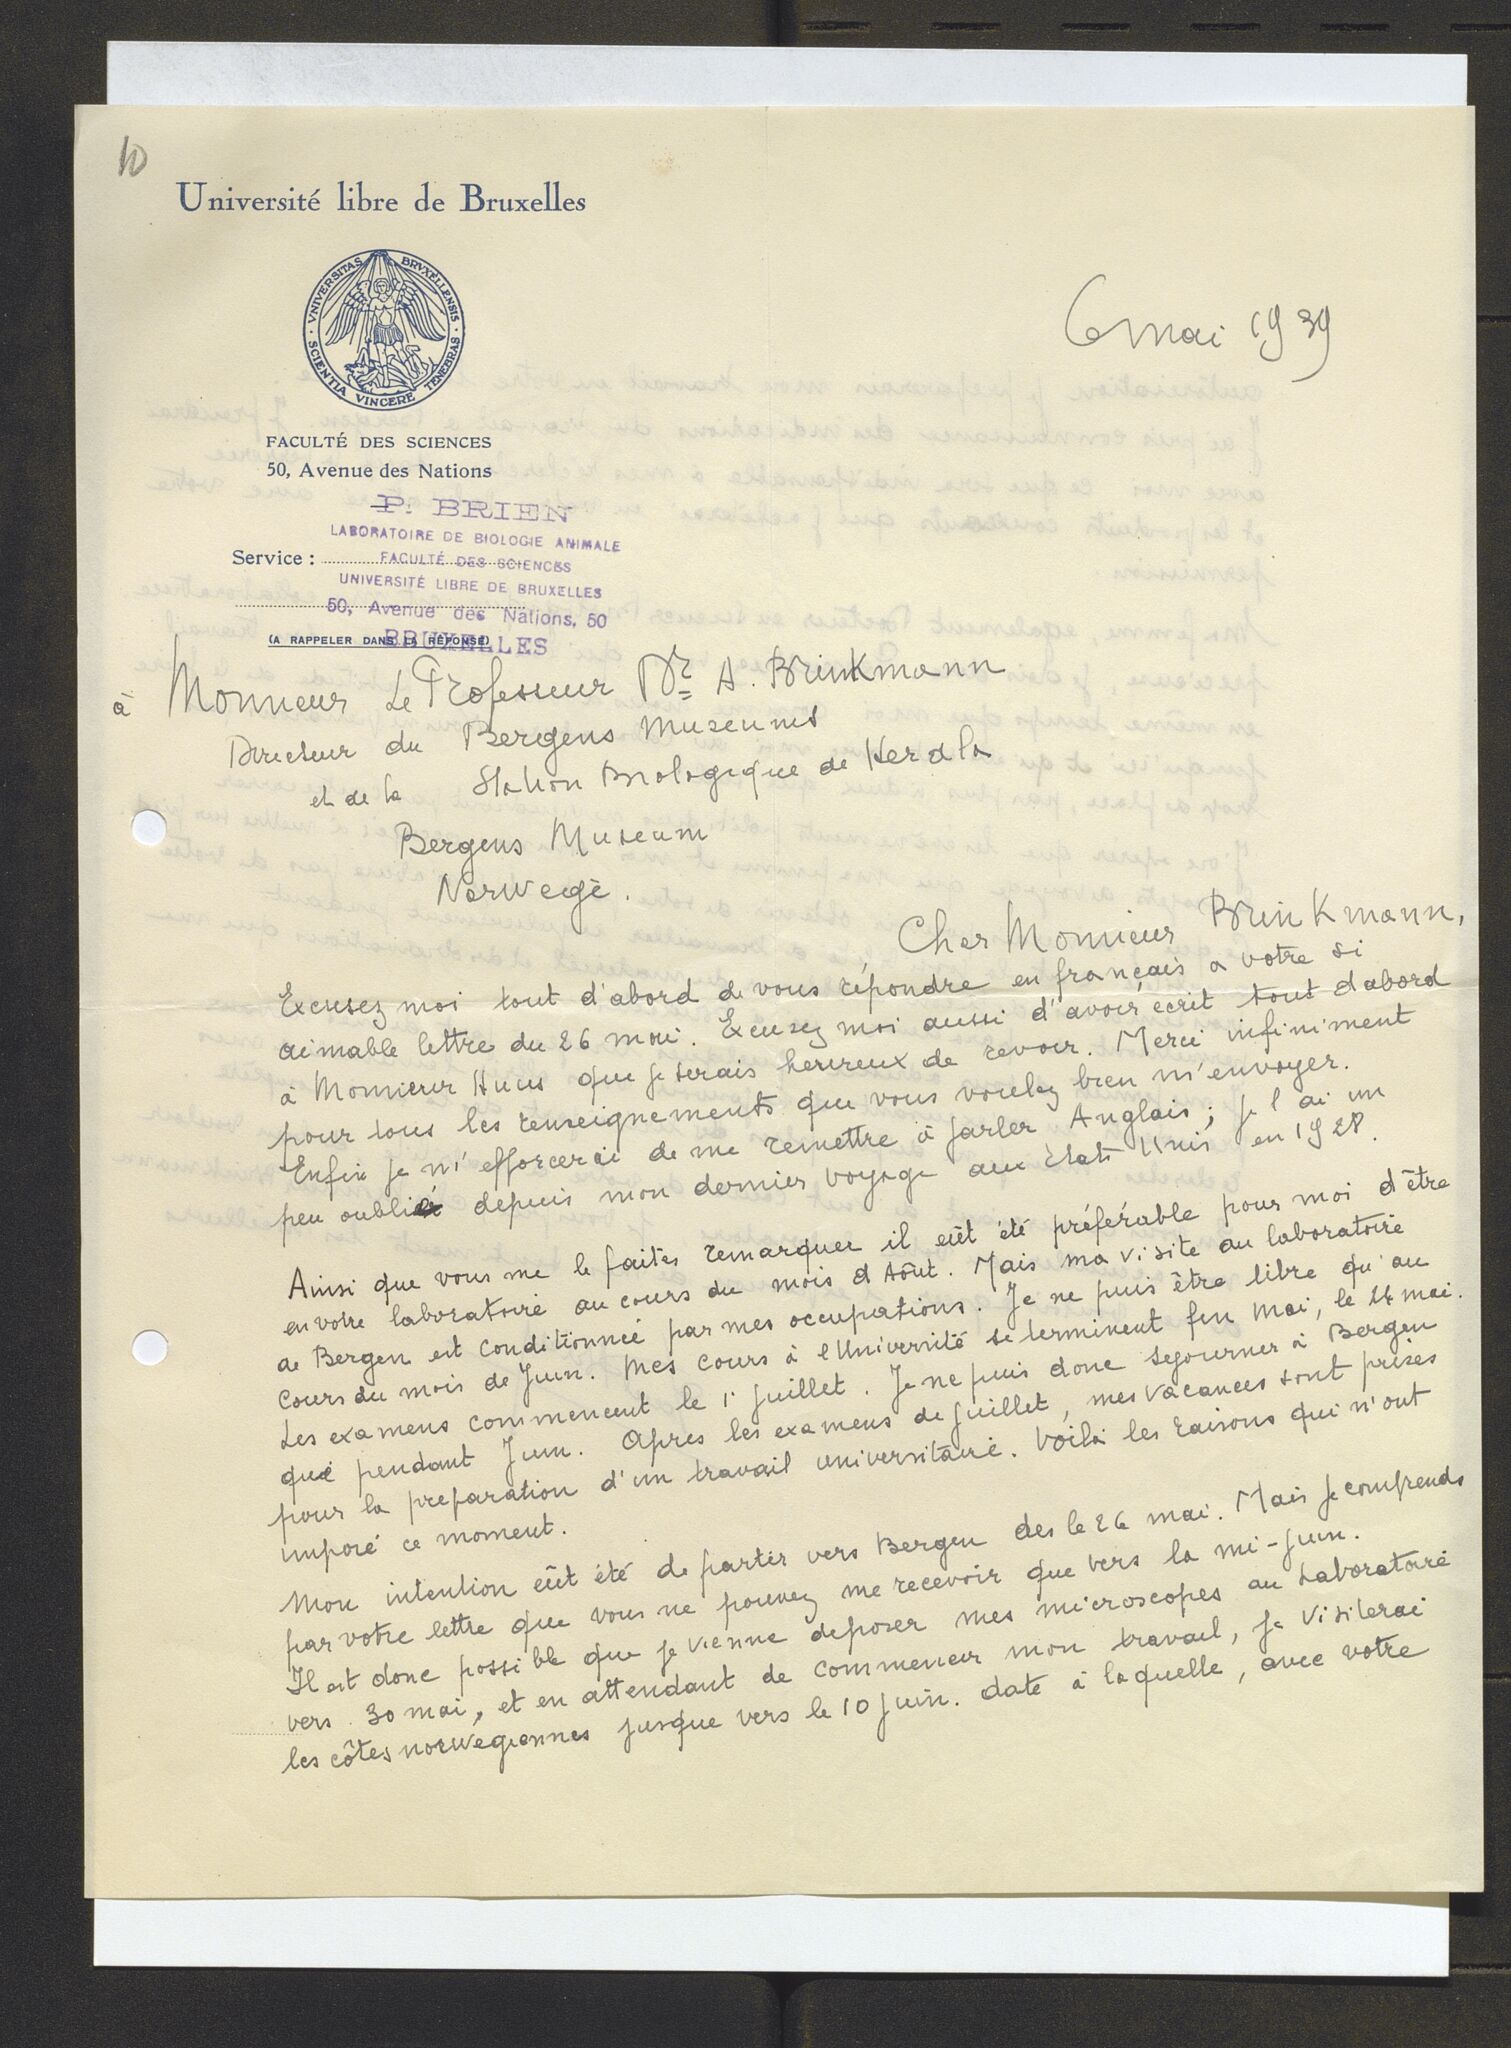 10
Université libre de Bruxelles
VNIVERSITAS BRVXELLENSIS
SCIENTIA VINCERE TENEBRAS
6 mai 1939
FACULTÉ DES SCIENCES
50, Avenue des Nations
P. BRIEN
LABORATOIRE DE BIOLOGIE ANIMALE
Service :
FACULTÉ DES SCIENCES
UNIVERSITÉ LIBRE DE BRUXELLES
50, Avenue des Nations, 50
(A RAPPELER DANS LA RÉPONSE)
BRUXELLES
à Monsieur Le Professeur Dr A. Brinkmann
Directeur du Bergens Museums
et de la Station Biologique de Herdla
Bergens Museum
Norwegè.
Cher Monsieur Brinkmann,
Excusez moi tout d'abord de vous répondre en français a votre si
aimable lettre du 26 mai. Excusez moi aussi d'avoir écrit tout d'abord
à Monsieur Huus que je serais heureux de revoir. Merci infiniment
pour tous les renseignements que vous voulez bien m'envoyer.
Enfin je m'efforcerai de me remettre à parler Anglais; je l'ai un
peu oublié depuis mon dernier voyage aux Etats Unis en 1928.
Ainsi que vous me le faites remarquer il eût été préférable pour moi d'être
en votre laboratoire au cours du mois d'Août. Mais ma visite au laboratoire
de Bergen est conditionnée par mes occupations. Je ne puis être libre qu'au
cours du mois de Juin. Mes cours à l'Université se terminent fin mai, le 24 mai.
Les examens commencent le 1r juillet. Je ne puis donc séjourner à Bergen
que pendant Juin. Après les examens de juillet, mes vacances sont prises
pour la préparation d'un travail universitaire. Voilà les raisons qui m'ont
imposé ce moment.
Mon intention eût été de partir vers Bergen dès le 26 mai. Mais je comprends
par votre lettre que vous ne pouvez me recevoir que vers la mi-juin.
Il est donc possible que je vienne déposer mes microscopes au Laboratoire
vers 30 mai, et en attendant de commencer mon travail, je visiterai
les côtes norwegiennes jusque vers le 10 juin. date à laquelle, avec votre